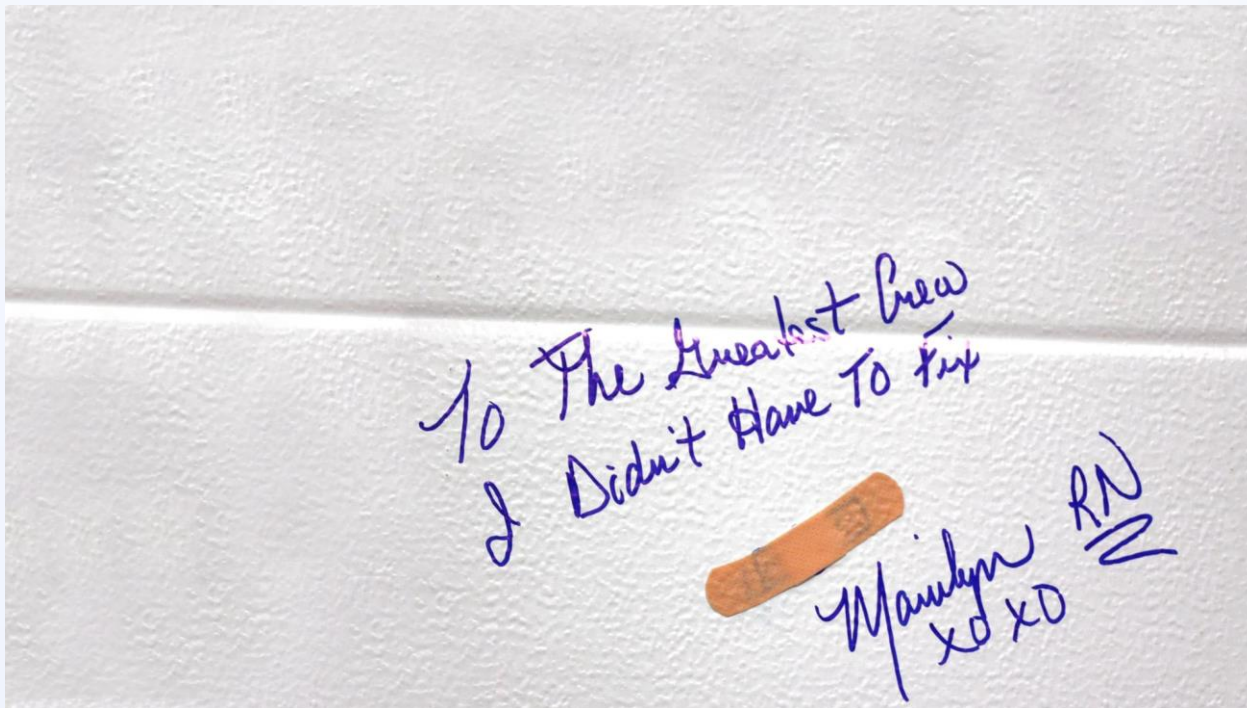 To The Greatest Crew
I Didn't Have To Fix
Marilyn RN
XOXO